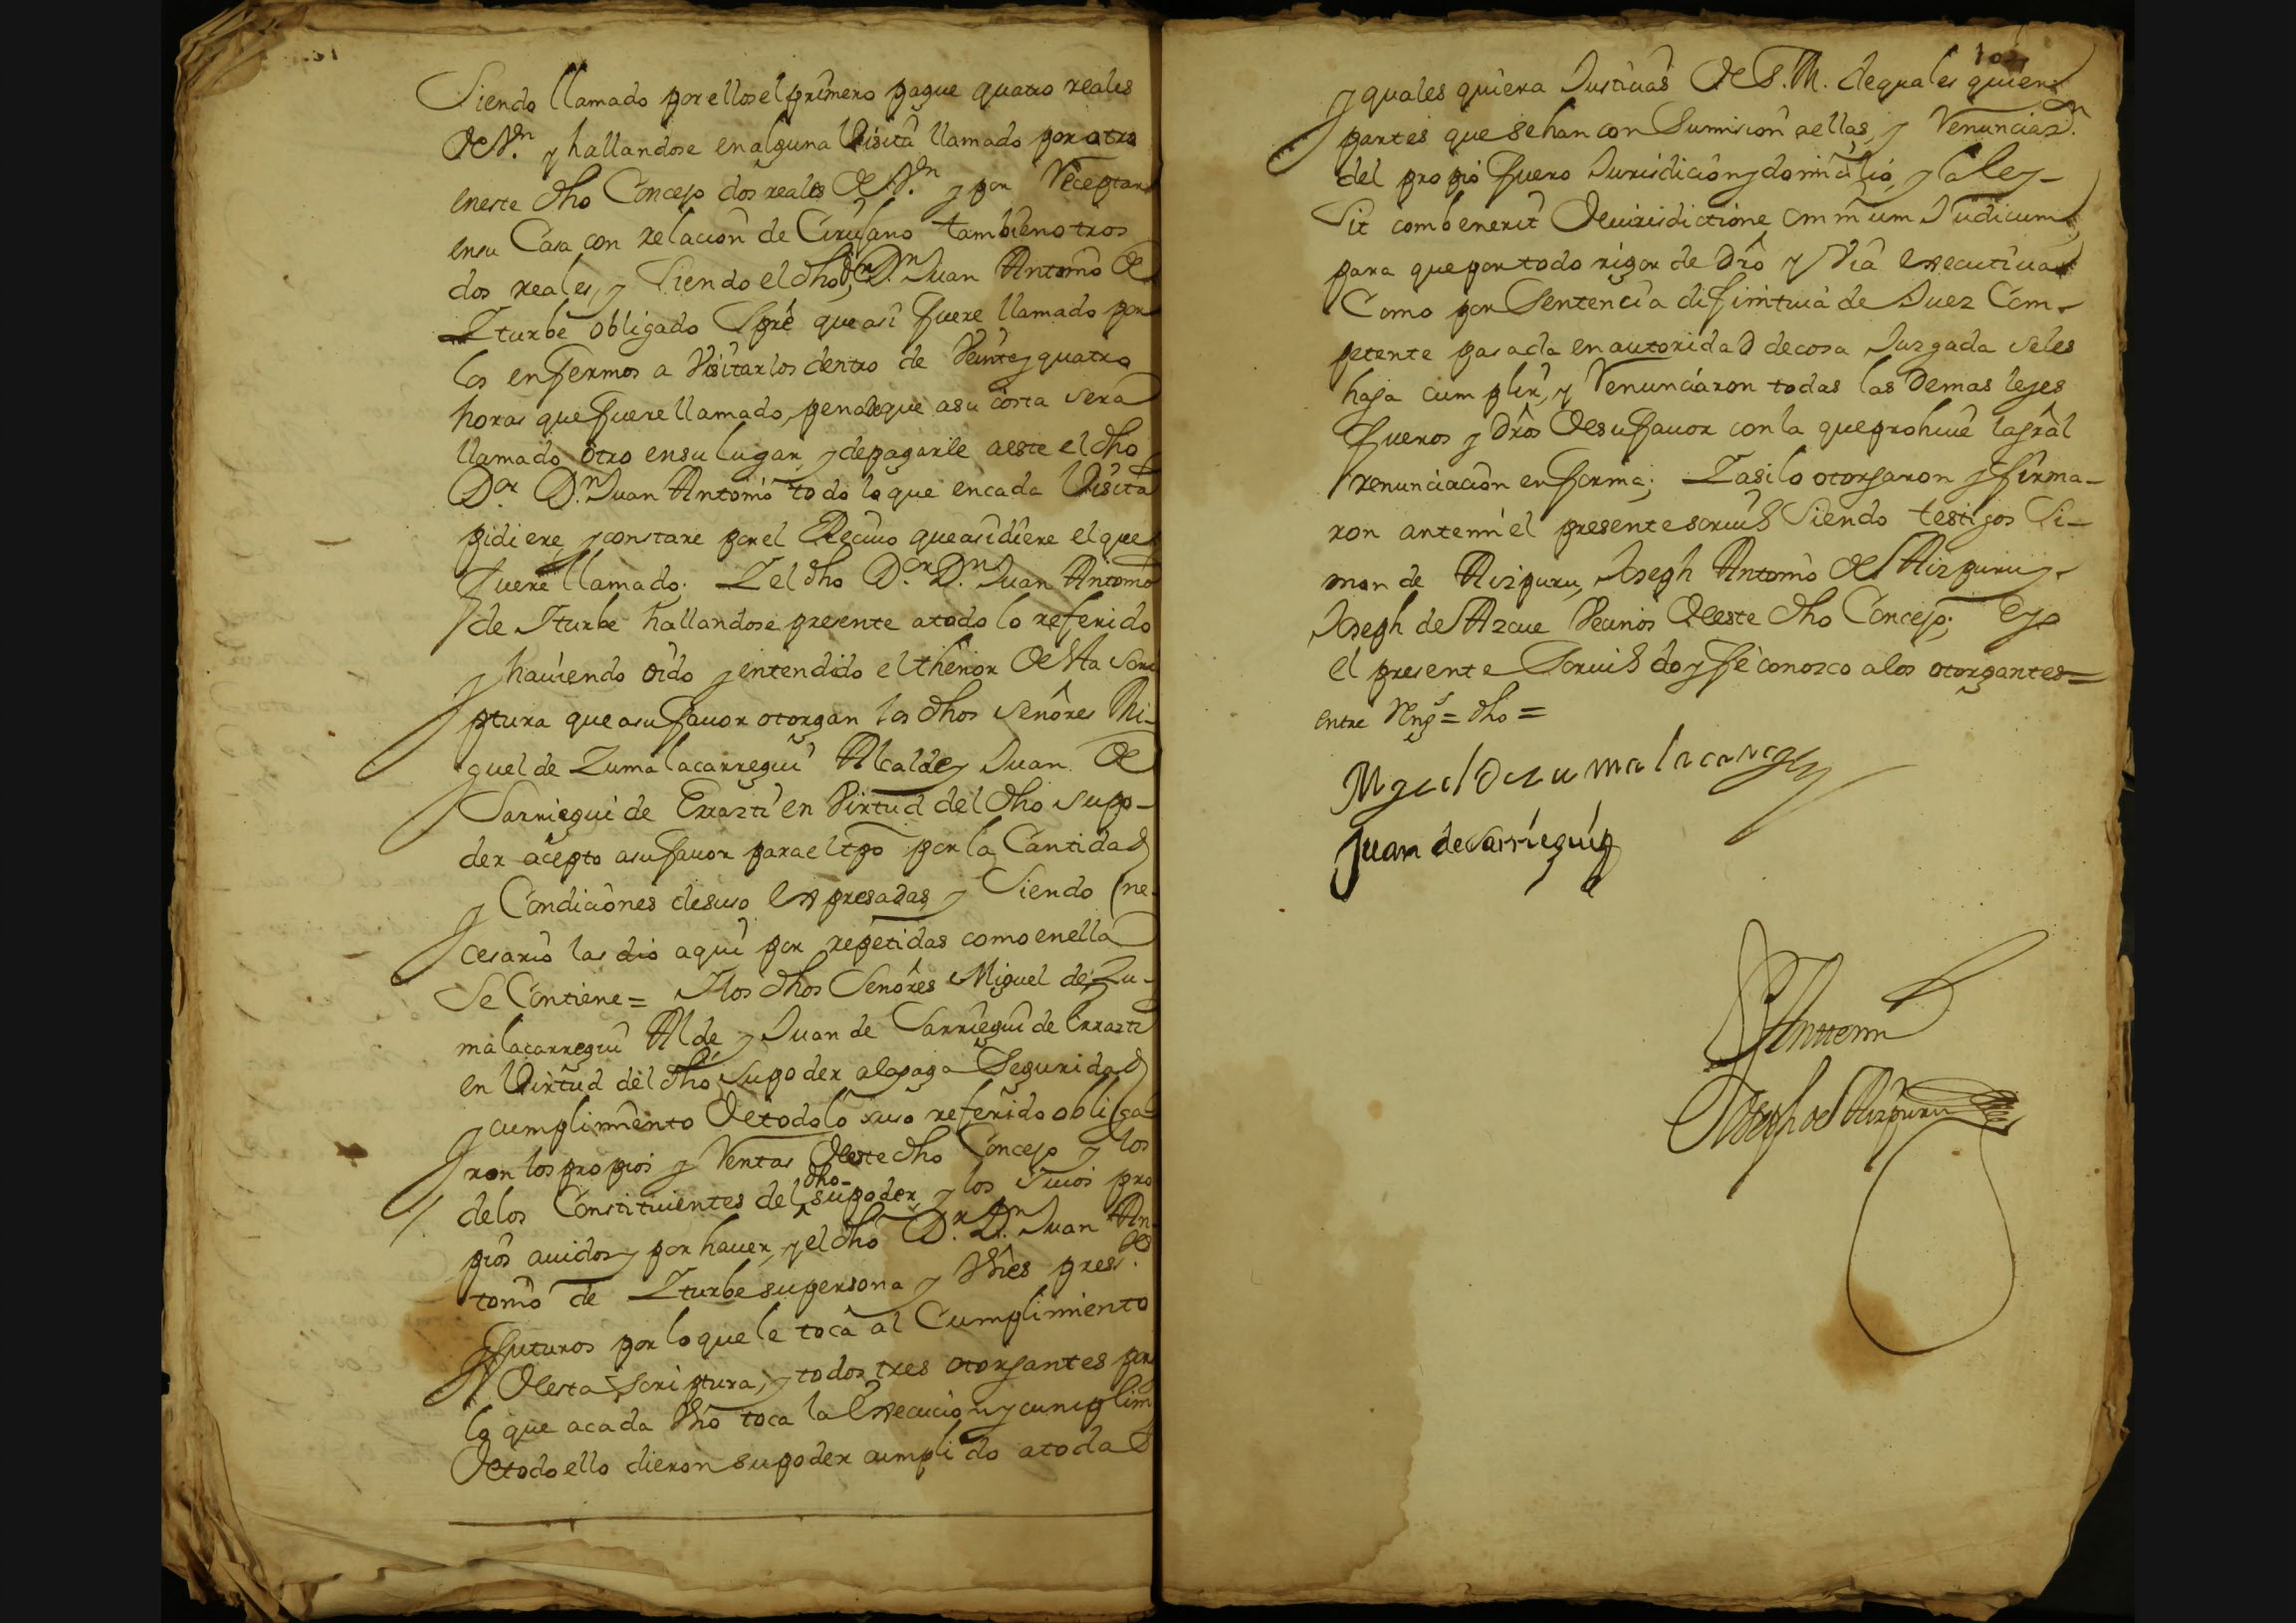 Siendo llamado por ellos el primero pague quatro reales
de V.n y hallandose en alguna Visita llamado por otro
en este dho Concejo dos reales de V.n y por Receptar
en su Casa con relacion de Cirujano tambien otros
dos reales, y Siendo el dho Dr D.n Juan Antonio de
Iturbe obligado Spré que asi fuere llamado por
los enfermos a Visitarlos dentro de Veinte y quatro
horas que fuere llamado, pena de que a su costa sera
llamado otro en su lugar, y de pagarle a este el dho
D.or D.n Juan Antonio todo lo que en cada Visita
pidiere, y constare por el Recivo que asi diere el que
fuere llamado; Y el dho D.or D.n Juan Antonio
de Iturbe hallandose presente a todo lo referido
y haviendo oido y entendido el thenor de esta Scri
ptura que a su favor otorgan los dhos Señores Mi-
guel de Zumalacarregui Alcalde y Juan de
Sarriegui de Errazti en Virtud del dho su po-
der acepto a su favor para el tpo por la Cantidad
y Condiciones desuso expresadas y Siendo ne-
cesario las dio aqui por repetidas como en ella
Se Contiene = Y los dhos Señores Miguel de Zu-
malacarregui Alde y Juan de Sarriegui de Errazti
en Virtud del dho su poder a la paga Seguridad
y cumplimiento de todo lo suso referido obliga-
ron los propios y Rentas de este dho Concejo y los
de los Constituientes del dho su poder y los Suios pro
pios avidos y por haver, y el dho D.r D.n Juan An-
tonio de Iturbe su persona y Vies pres.tes
y futuros por lo que le toca al Cumplimiento
de esta Scriptura, y todos tres otorgantes por
lo que a cada Vno toca la execucion y cumplim
de todo ello dieron su poder cumplido a todas
y quales quiera Justicias de S.M. de quales quier
partes que sehan con Sumision a ellas, y Renunciaz.n
del propio fuero Jurisdicion y domicilio, y la ley
Sit combenerit de iurisdictione omnium Judicum
para que por todo rigor de dro y Via executiva
Como por Sentencia difinitiva de Juez Com-
petente pasada en autoridad de cosa Juzgada se les
haga cumplir, y Renunciaron todas las demas leyes
fueros y dros de su favor con la que prohive la gral
renunciacion en forma; Y asi lo otorgaron y firma-
ron ante mi el presente scriuº Siendo testigos Si-
mon de Aizpuru, Joseph Antonio de Aizpuru y
Joseph de Azcue Vecinos de este dho Concejo; e yo
el presente Scriuº doy fe conozco a los otorgantes =
entre Rengs = dho =
Miguel de zumalacarregui
Juan de Sarriegui
Ante mi
Joseph de Aizpuru